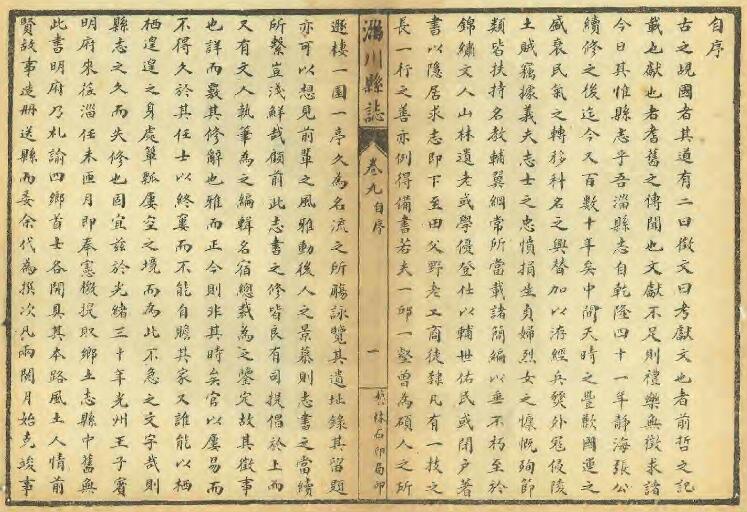 自序
古之覘國者其道有二曰徵文曰考獻文也者前哲之記
載也獻也者耆舊之傳聞也文獻不足則禮樂無徵求諸
今日其惟縣志乎吾淄縣志自乾隆四十一年靜海張公
續修之後迄今又百數十年矣中間天時之豐歉國運之
盛衰民氣之轉移科名之興替加以洊經兵燹外寇侵陵
土賊竊據義夫志士之忠憤捐生貞婦烈女之慷慨殉節
類皆扶持名教輔翼綱常所當載諸簡編以垂不朽至於
錦繡文人山林遺老或學優登仕以輔世佑民或閉戶著
書以隱居求志即下至田父野老工商徒隸凡有一技之
長一行之善亦例得備書若夫一邱一壑曾為碩人之所
淄川縣誌
卷九自序
一
藝林石印局印
遯棲一園一亭久為名流之所觴詠覽其遺址錄其留題
亦可以想見前輩之風雅動後人之景慕則志書之當續
所繫豈淺鮮哉顧前此志書之修皆良有司提倡於上而
又有文人執筆為之編輯名宿總裁為之鑒定故其徵事
也詳而覈其修辭也雅而正今則非其時矣官以屢易而
不得久於其任士以終窶而不能自贍其家又誰能以栖
栖遑遑之身處簞瓢屢空之境而為此不急之文字哉則
縣志之久而失修也固宜茲於光緒三十年光州王子賓
明府來蒞淄任未匝月即奉憲檄提取鄉土志縣中舊無
此書明府乃札諭四鄉首士各開具其本路風土人情前
賢故事造冊送縣而委余代為撰次凡兩閱月始克竣事